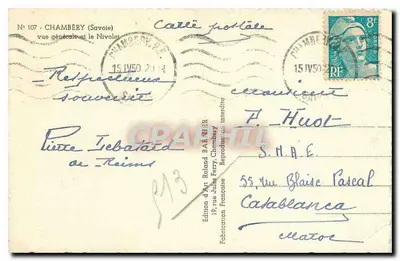 N° 107 - CHAMBÉRY (Savoie)
vue générale et le Nivolet
Carte postale
CHAMBERY R.P.
15.IV50
8F
RF
Respectueux
souvenir
Pierre
de Reims
Edition d'Art Roland BARBIER
19, rue Jules Ferry, Chambéry
Fabrication Française - Reproduction
CARTORUM
Monsieur
P. Huot
S.M.A.E.
55, rue Blaise Pascal
Casablanca
Maroc
913